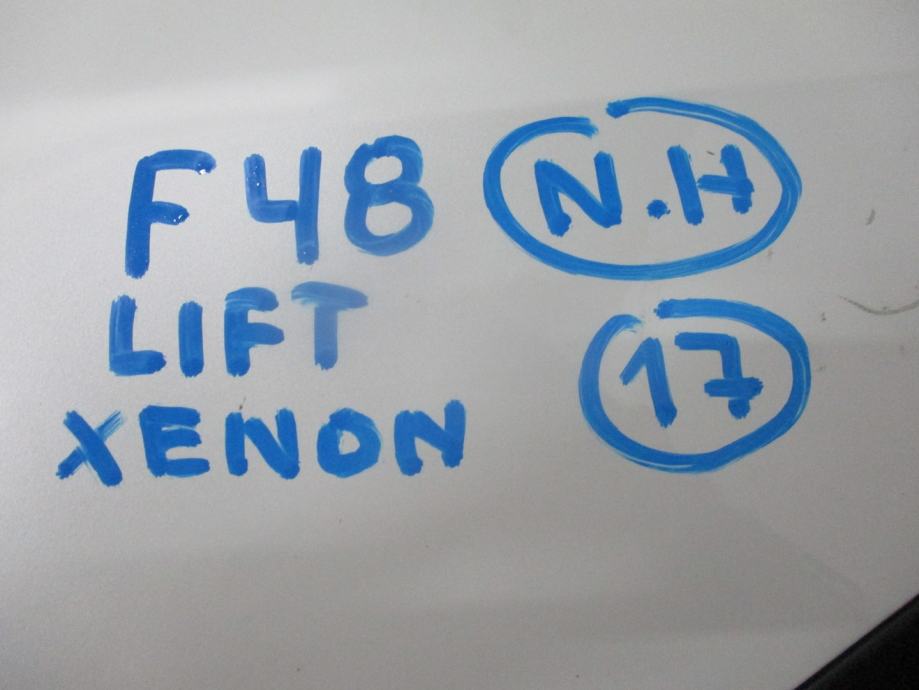 F48 N.H
LIFT 17
XENON